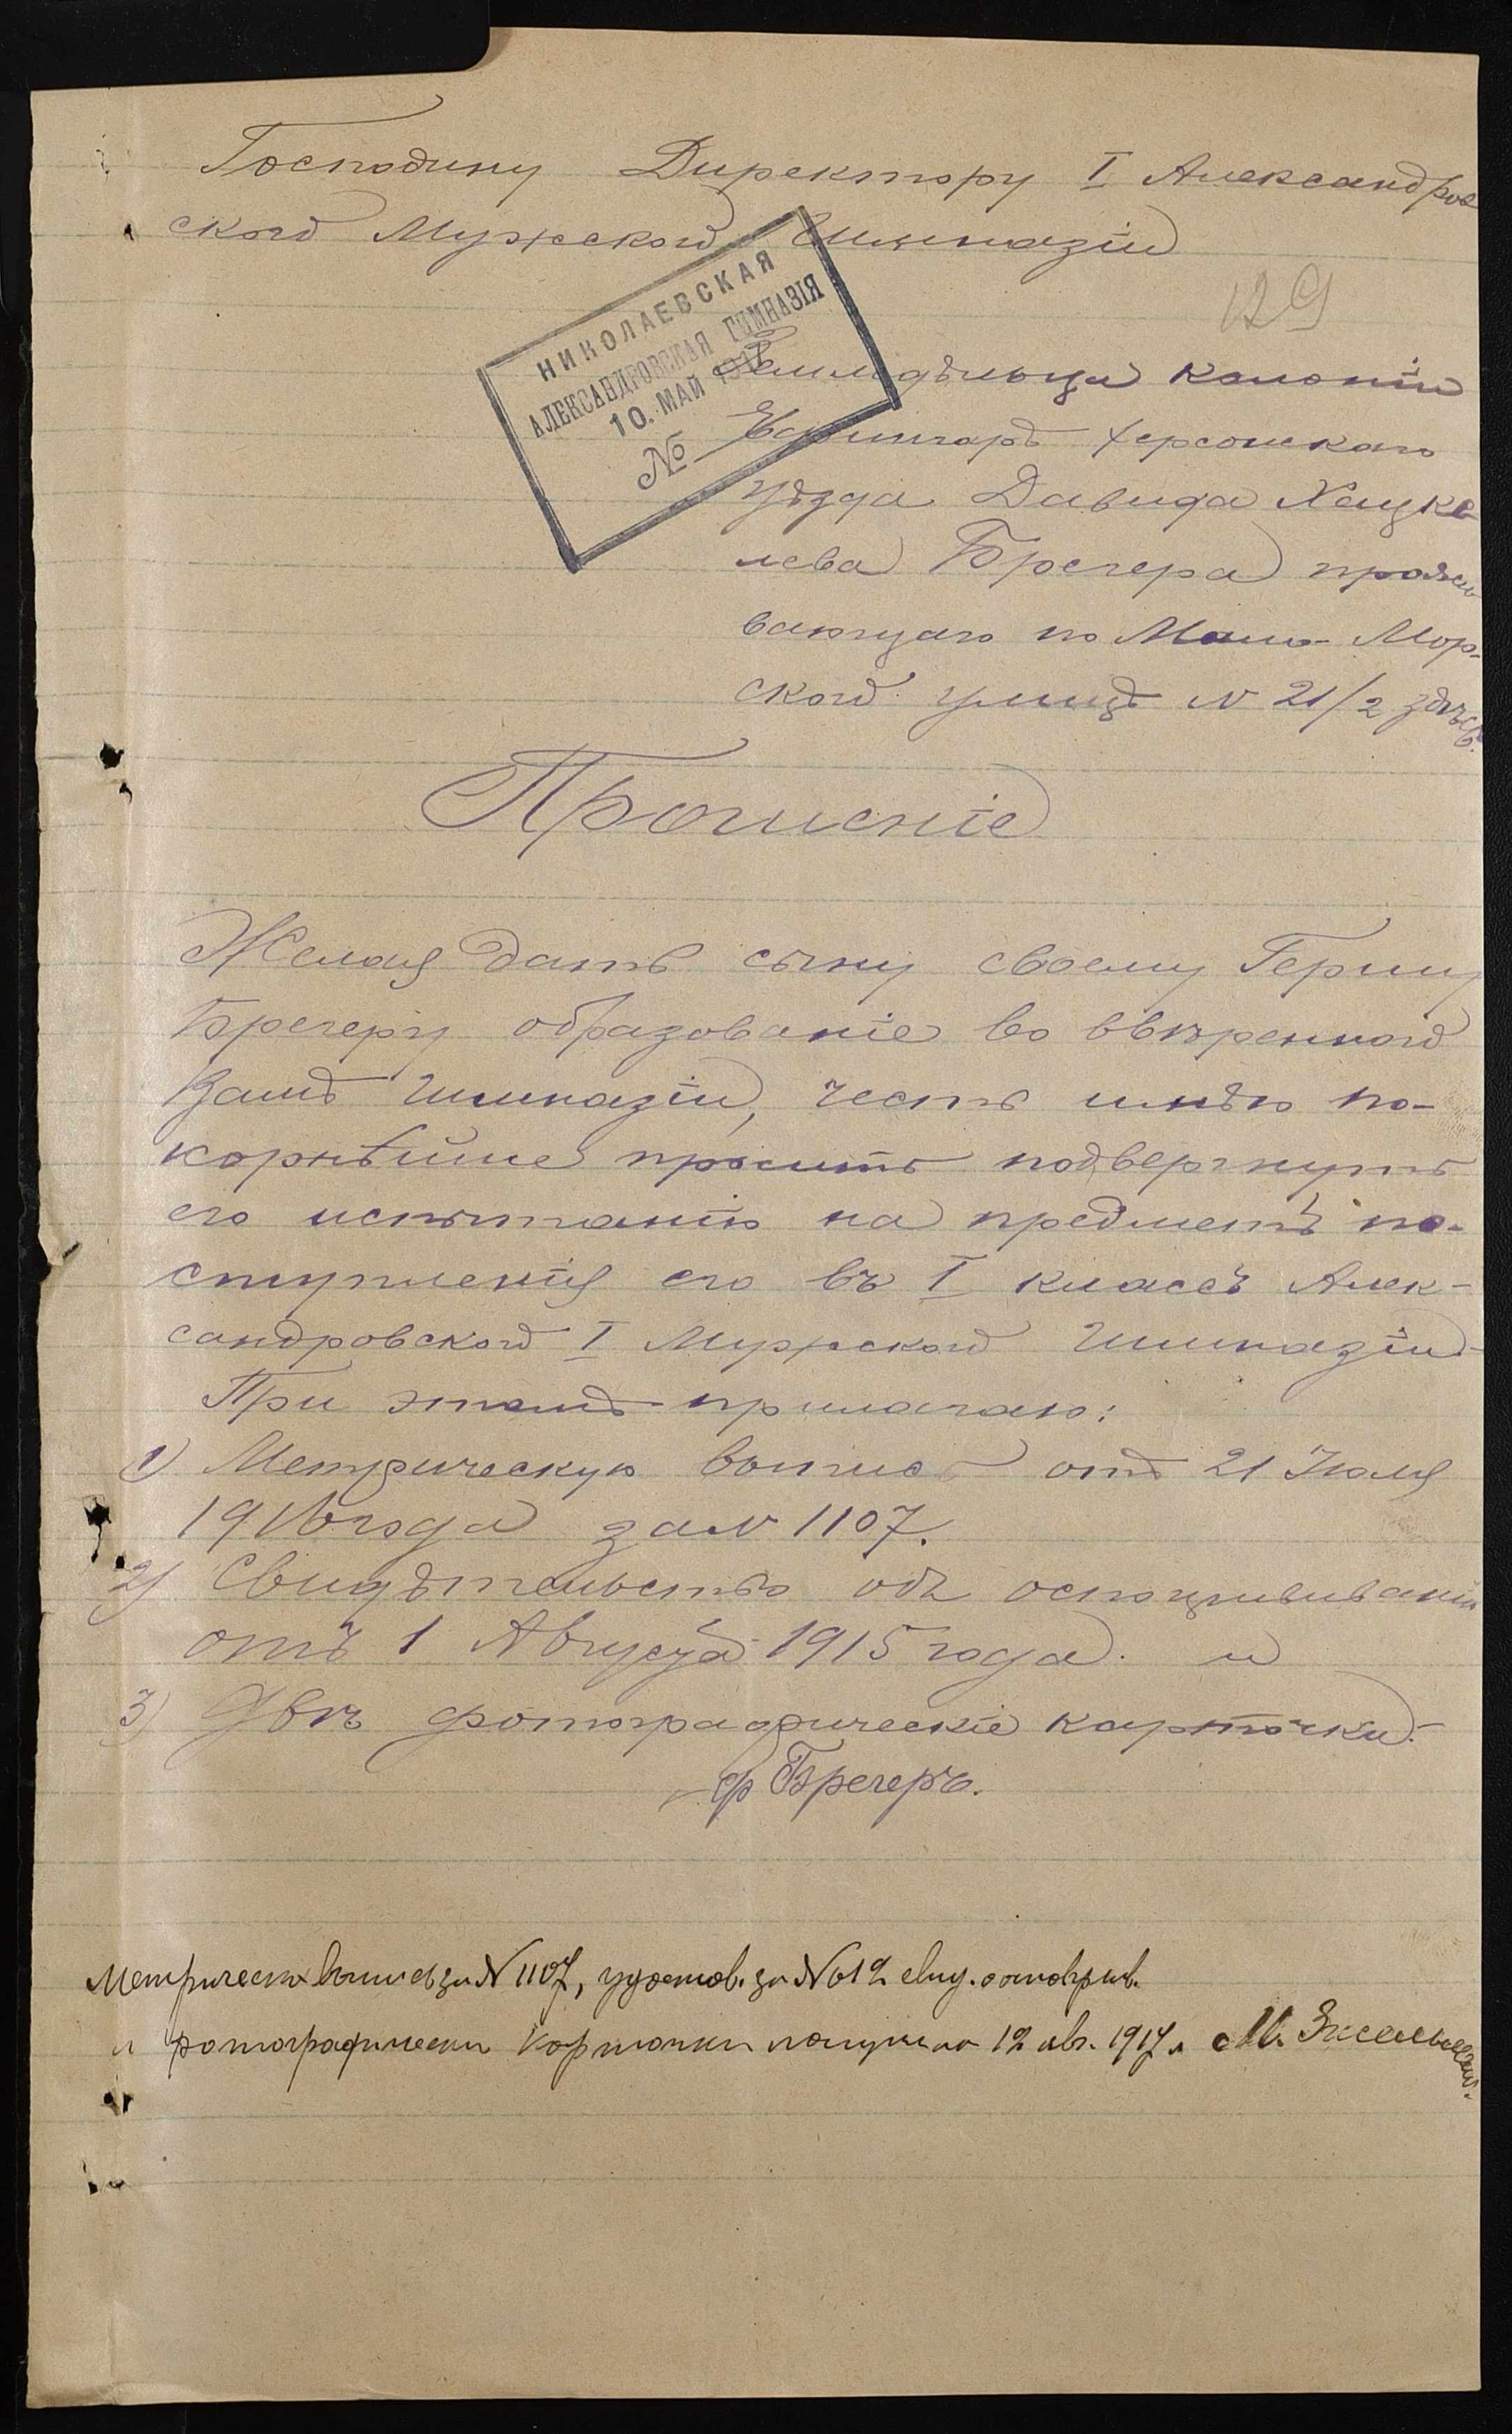 Господину Директору I Александров
ской Мужской Гимназіи
129
НИКОЛАЕВСКАЯ
АЛЕКСАНДРОВСКАЯ ГИМНАЗІЯ
10. МАЙ 1917
№
Земледѣльца колоніи
Херсонскаго
уѣзда Давида Хацке
лева Бречера прожи
вающаго по Мало-Мор-
ской улицѣ N 21/2 здѣсь.
Прошеніе
Желая дать сыну своему Гершу
Бречеру образованіе во ввѣренной
Вамъ гимназіи, честь имѣю по-
корнѣйше просить подвергнуть
его испытанію на предметъ по-
ступленія его въ I классъ Алек-
сандровской I Мужской Гимназіи.
При этомъ прилагаю:
1) Метрическую выпись отъ 21 Іюля
1916 года за N 1107.
2) Свидѣтельство объ оспопрививаніи
отъ 1 Августа 1915 года. и
3) Двѣ фотографическіе карточки.
Бречеръ.
Метрическ выпись за N 1107, удостов. за N 612 свид. о
и фотографически карточки получило 12 авг. 1917 г.